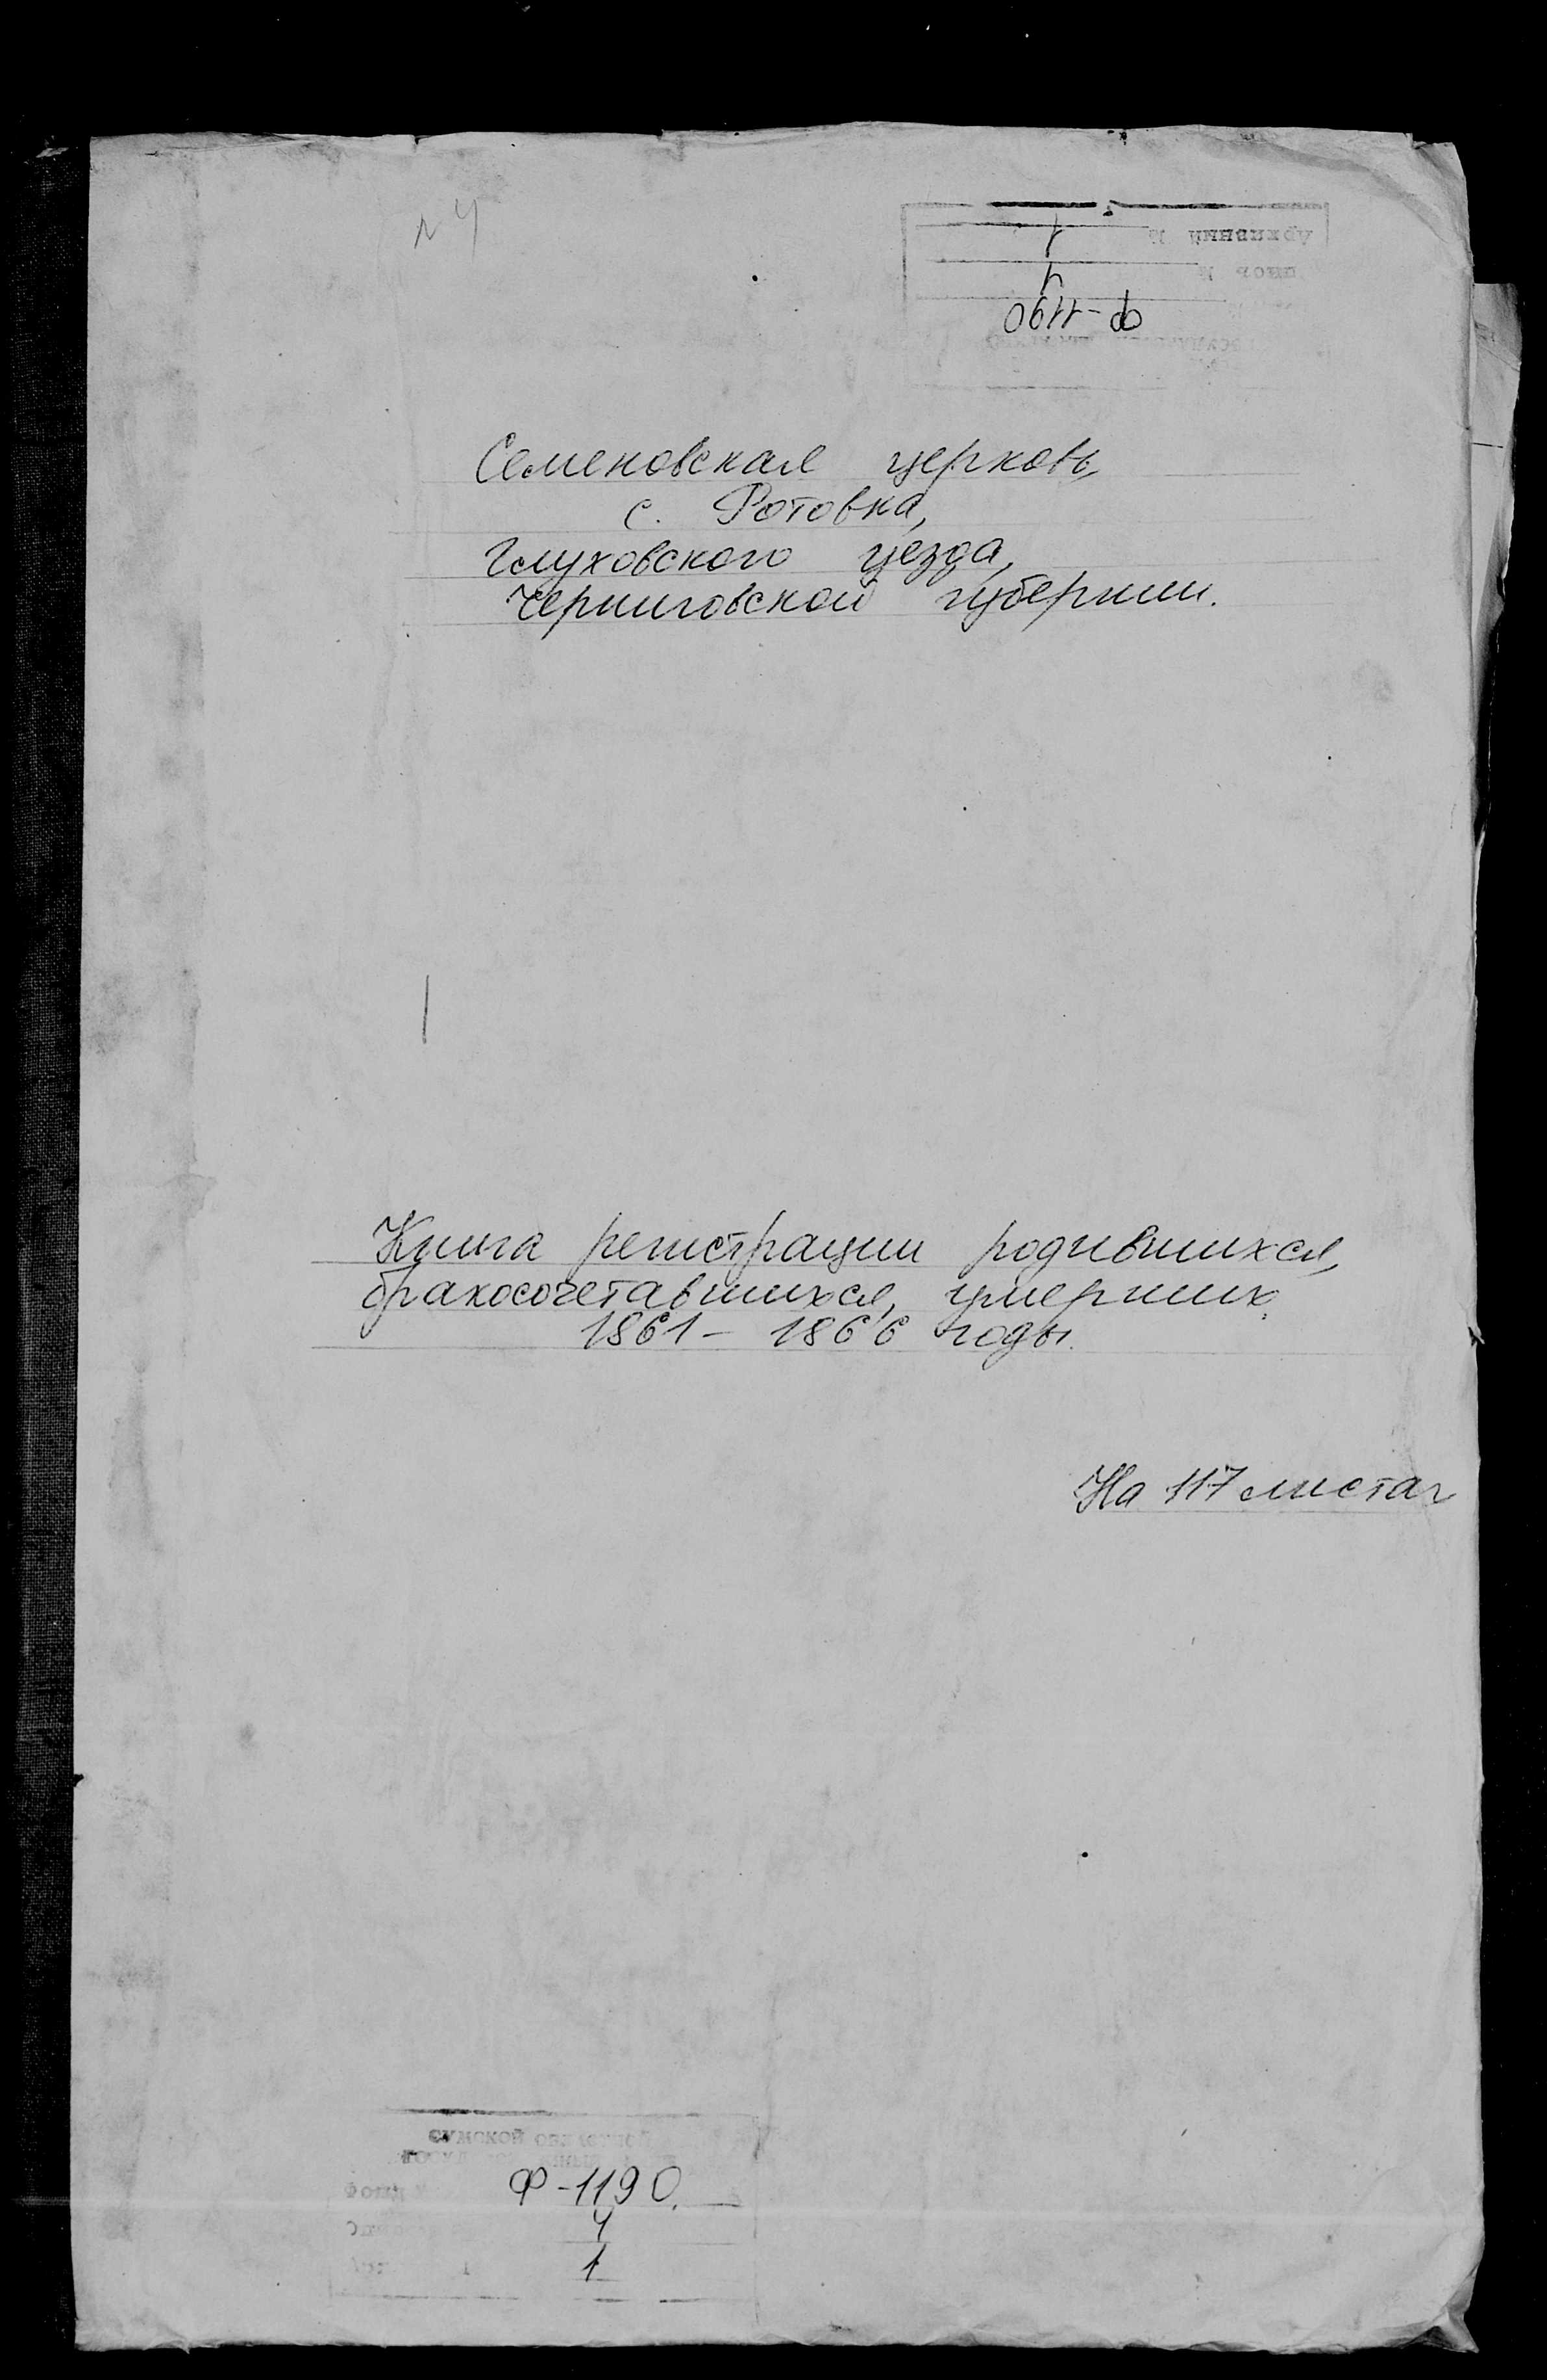 Архивный №
Ф-1190
Семеновская церковь,
с. Ротовка,
Глуховского уезда,
Черниговской губернии.
Книга регистрации родившихся,
бракосочетавшихся, умерших
1861 – 1866 годы.
На 117 листах
Сумской
Ф-1190.
4
1